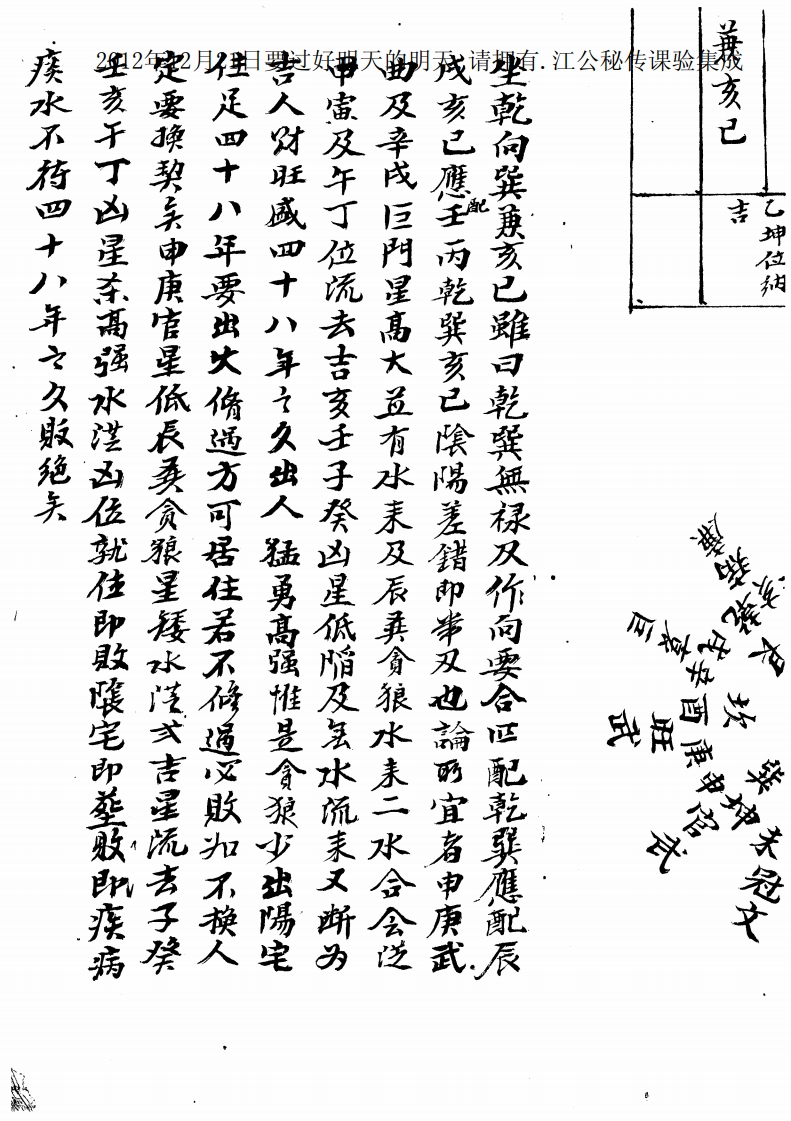 2012年12月21日要过好明天的明天,请拥有.江公秘传课验集成
兼亥巳
乙坤位納
吉
坐乾向巽兼亥巳雖曰乾巽無禄及作向要合匹配乾巽應配辰
戌亥巳應配壬丙乾巽亥巳陰陽差錯即常及也論所宜者申庚武
曲及辛戌巨門星高大並有水来及辰巽貪狼水来二水合会从
申寅及午丁位流去吉亥壬子癸凶星低陷及無水流来又断为
吉人財旺盛四十八年之久出人猛勇高强惟是貪狼少出陽宅
住足四十八年要出火脩過方可居住若不修過必敗如不换人
定要换契矣申庚官星低辰巽貪狼星矮水从弍吉星流去子癸
壬亥午丁凶星来高强水从凶位就住即敗陰宅即塟敗即疾病
痰水不待四十八年之久敗絶矣
庚
亥
乾
戌
辛
酉
庚
申
坤
未
坎
巽
巨
旺
武
官
武
冠
文